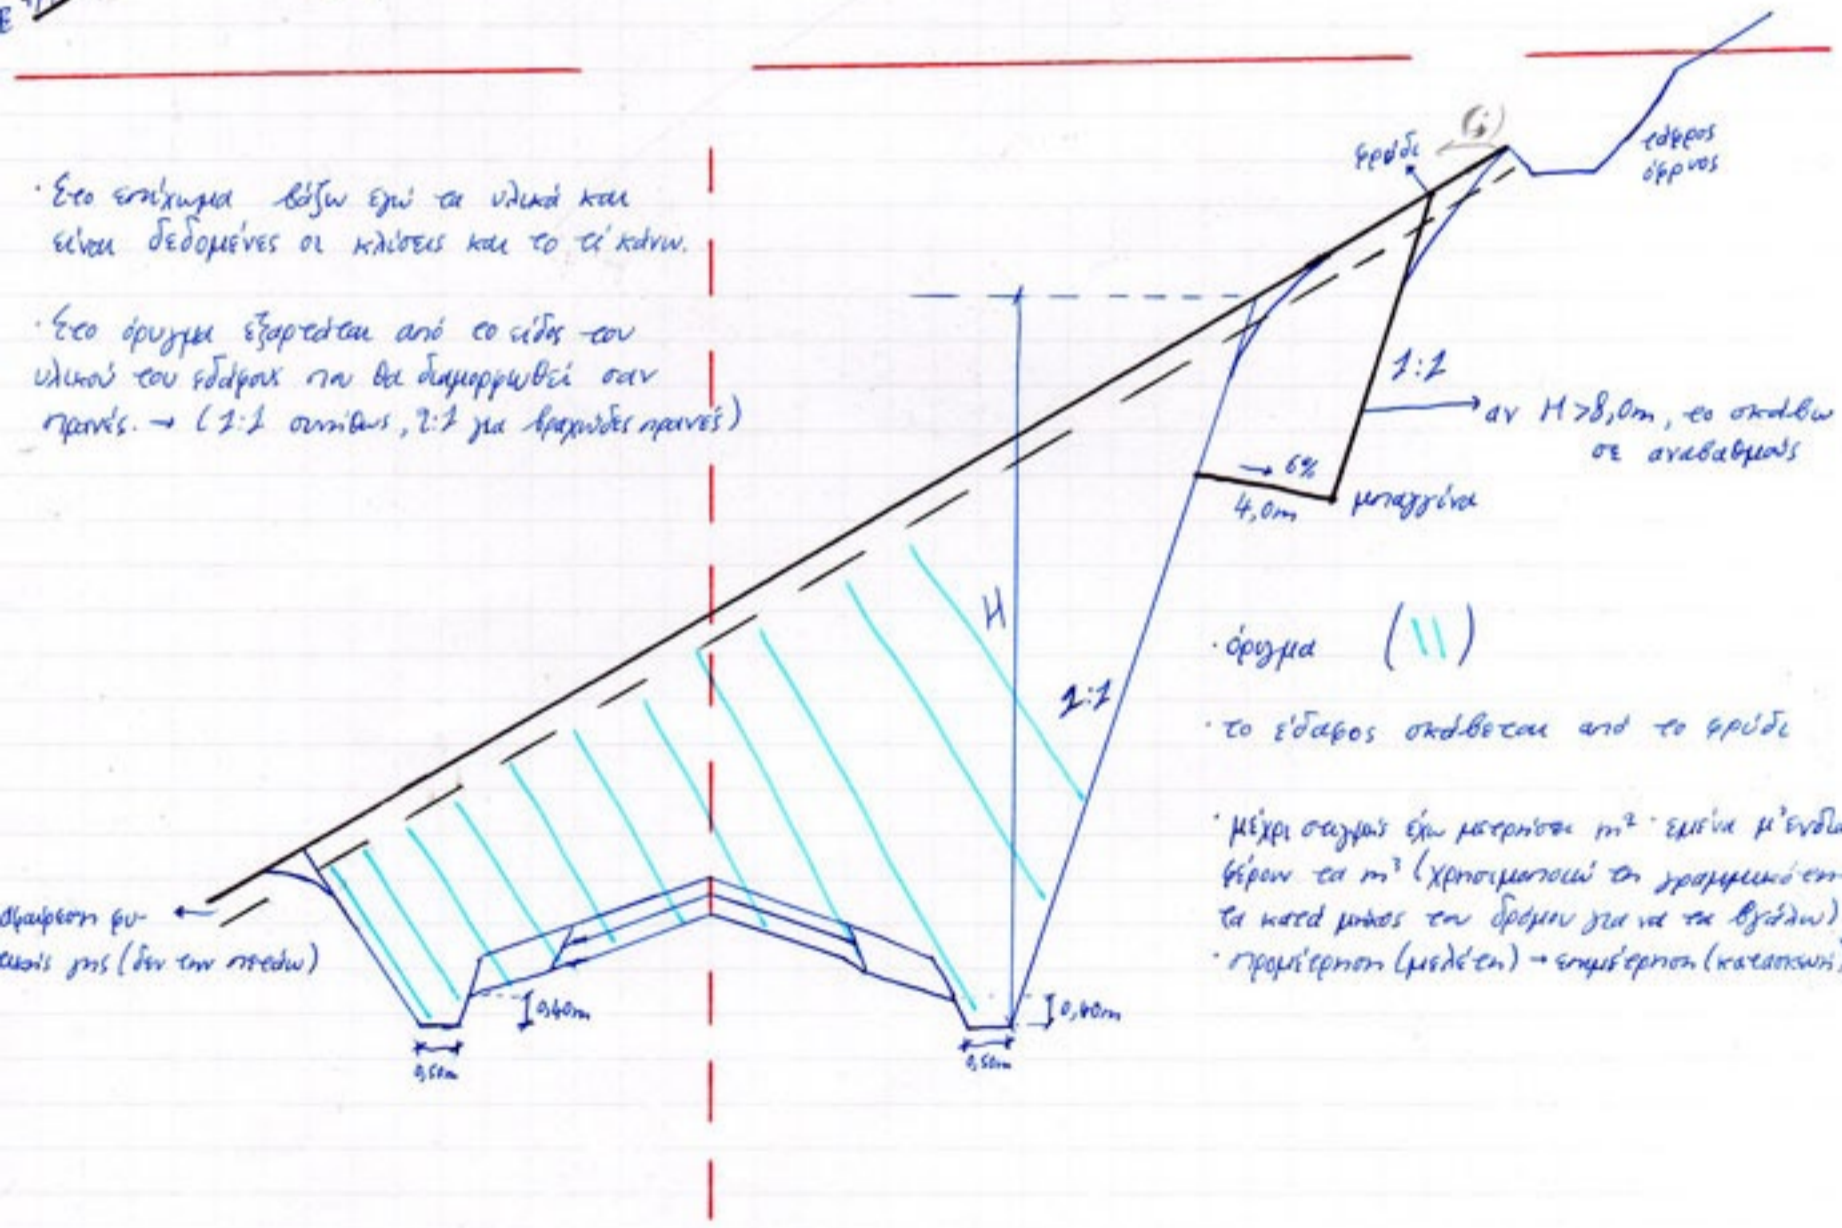 φρύδι
τάφρος
όφρυος
· Στο επίχωμα βάζω εγώ τα υλικά και
είναι δεδομένες οι κλίσεις και το τί κάνω.
· Στο όρυγμα εξαρτάται από το είδος του
υλικού του εδάφους που θα διαμορφωθεί σαν
πρανές. → (1:1 συνήθως, 2:1 για βραχώδες πρανές)
1:1
αν H>8,0m, το σκάβω
σε αναβαθμούς
→ 6%
4,0m
μπαγγίνα
H
1:1
· όρυγμα ( )
· το έδαφος σκάβεται από το φρύδι
· μέχρι στιγμής έχω μετρήσει m² · εμένα μ' ενδια
φέρουν τα m³ (χρησιμοποιώ τη
τα κατά μήκος του δρόμου για να τα βγάλω)
· προμέτρηση (μελέτη) → επιμέτρηση (κατασκευή)
αφαίρεση φυ-
τικής γης (δεν την πετάω)
0,40m
0,40m
0,50m
0,50m